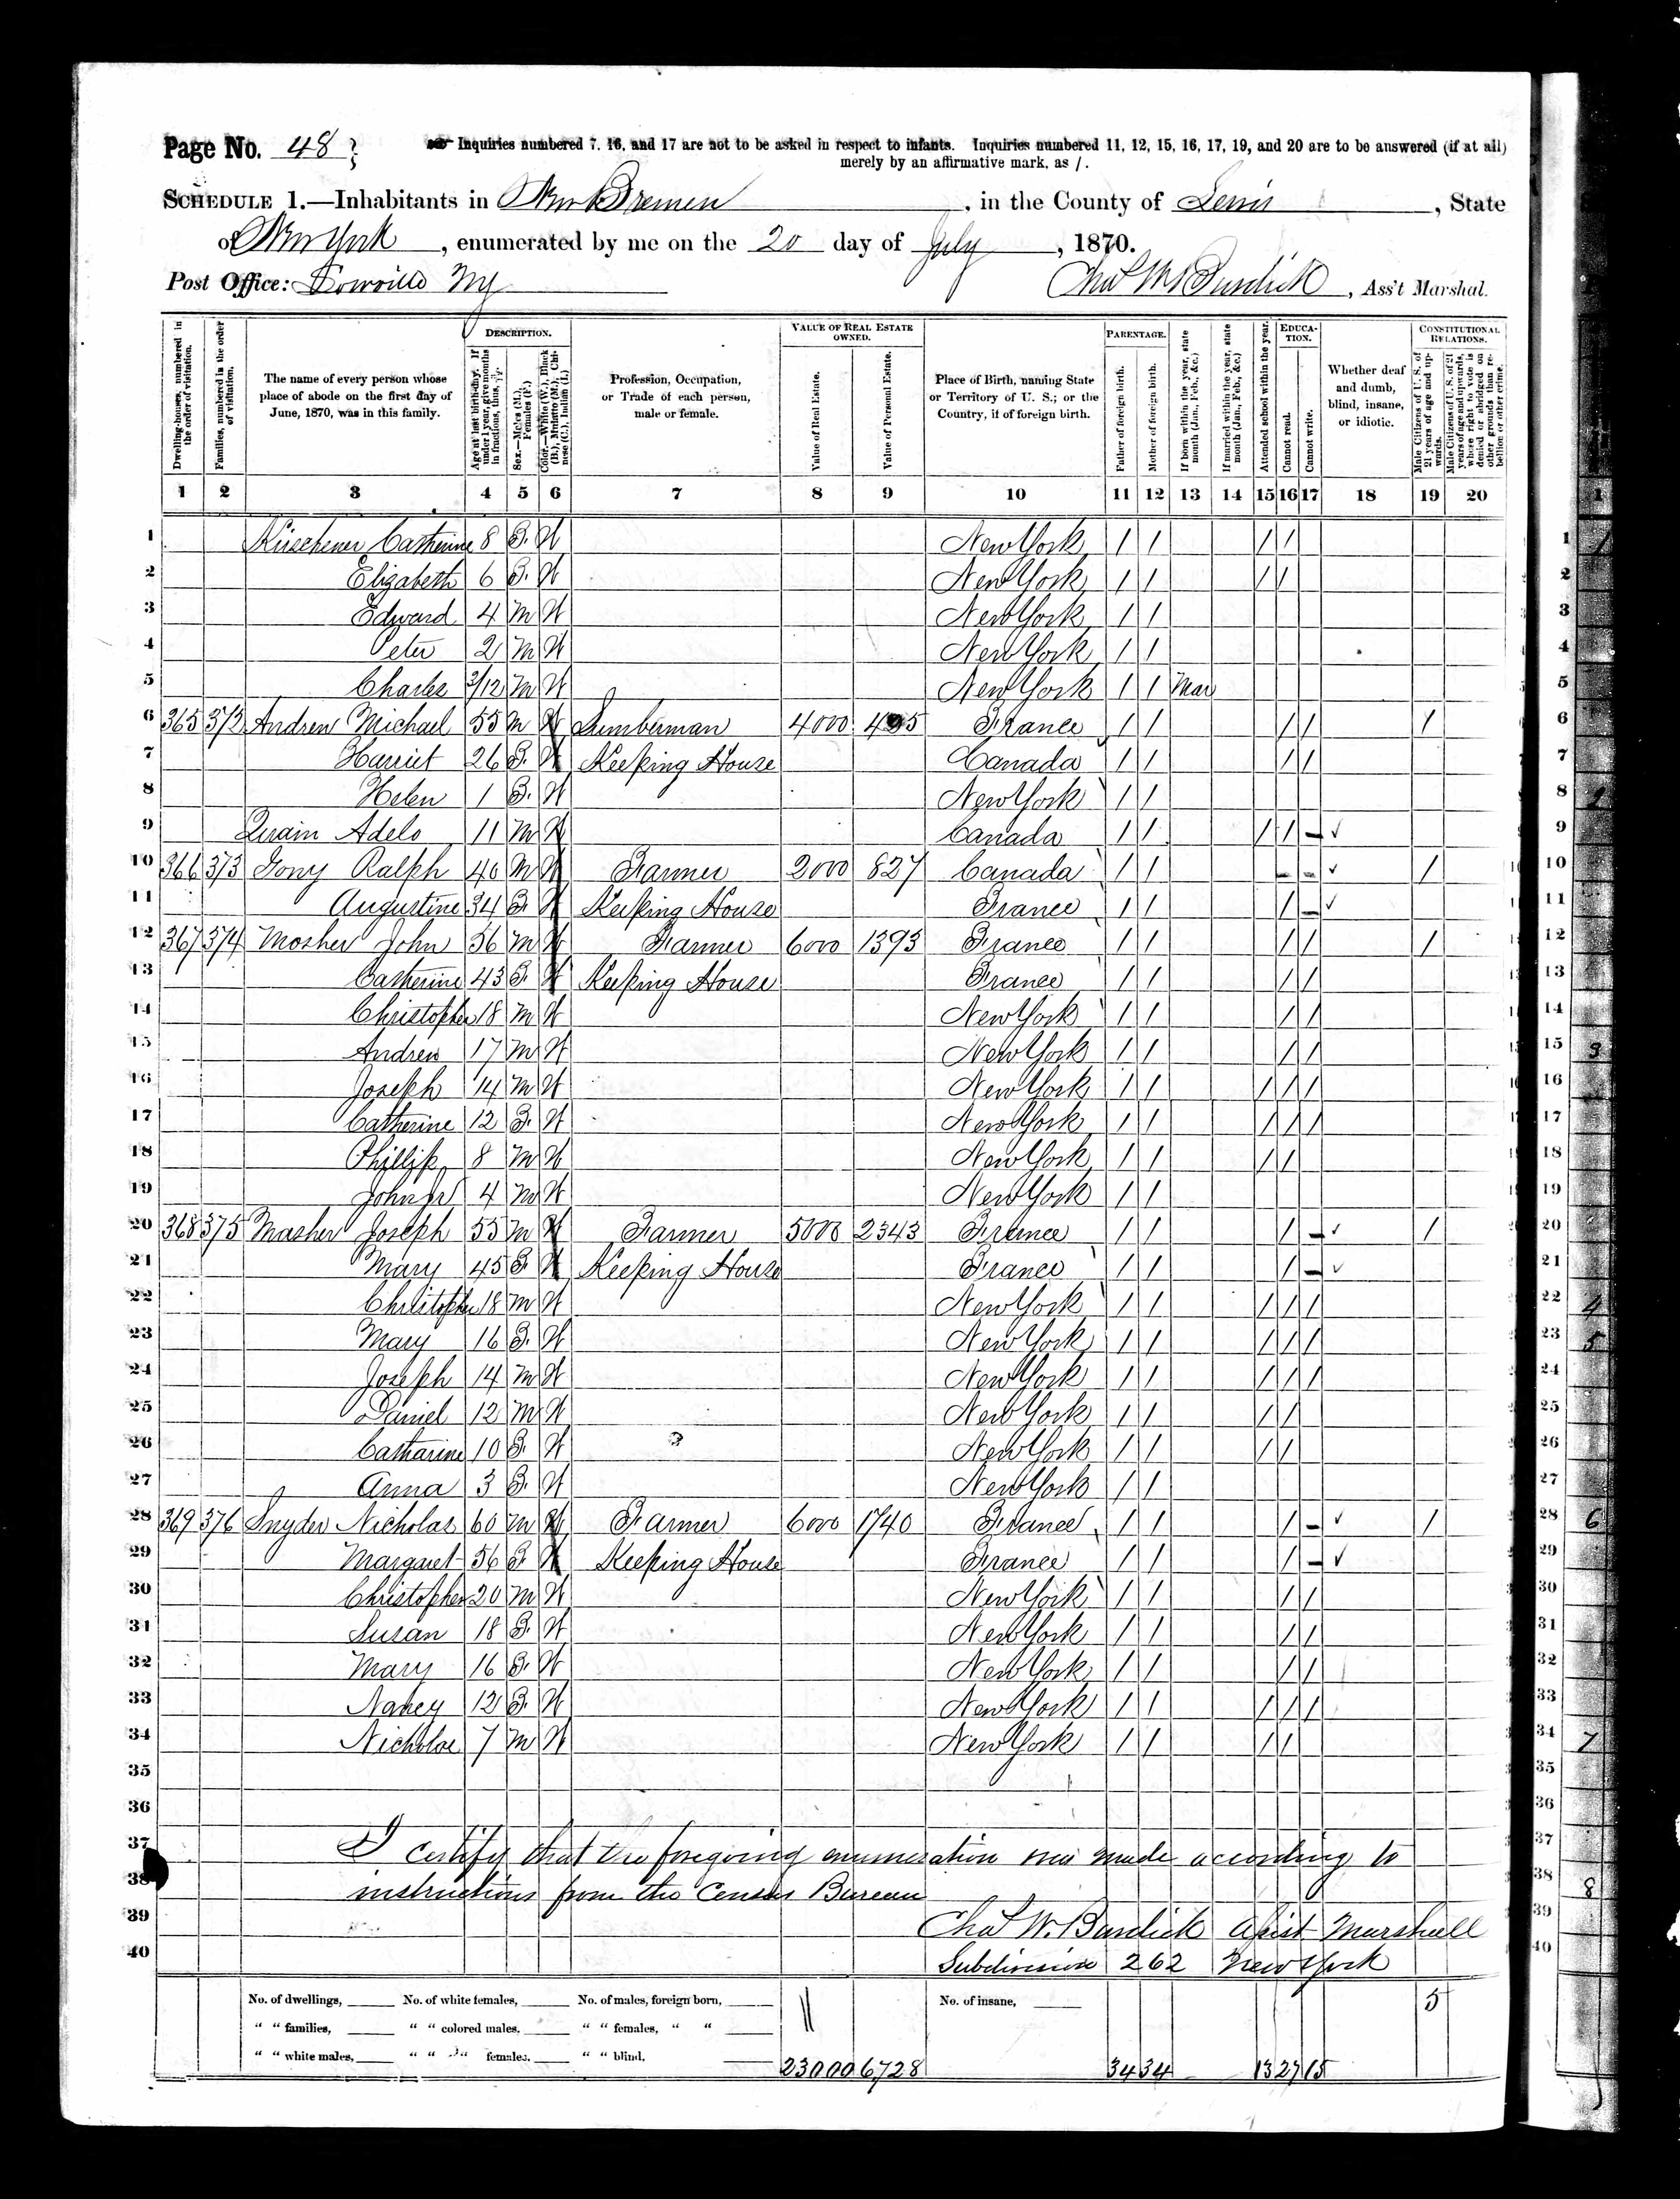 Page No. 48
Inquiries numbered 7, 16, and 17 are not to be asked in respect to infants. Inquiries numbered 11, 12, 15, 16, 17, 19, and 20 are to be answered (if at all)
merely by an affirmative mark, as /.
SCHEDULE 1.—Inhabitants in New Bremen, in the County of Lewis, State
of New York, enumerated by me on the 20 day of July, 1870.
Post Office: Lowville NY Chas W Burdick, Ass't Marshal.
Dwelling-houses, numbered in the order of visitation.
Families, numbered in the order of visitation.
The name of every person whose place of abode on the first day of June, 1870, was in this family.
DESCRIPTION.
Age at last birth-day. If under 1 year, give months in fractions, thus, 3/12
Sex.—Males (M.), Females (F.)
Color.—White (W.), Black (B.), Mulatto (M.), Chinese (C.), Indian (I.)
Profession, Occupation, or Trade of each person, male or female.
VALUE OF REAL ESTATE OWNED.
Value of Real Estate.
Value of Personal Estate.
Place of Birth, naming State or Territory of U. S.; or the Country, if of foreign birth.
PARENTAGE.
Father of foreign birth.
Mother of foreign birth.
If born within the year, state month (Jan., Feb., &c.)
If married within the year, state month (Jan., Feb., &c.)
Attended school within the year.
EDUCATION.
Cannot read.
Cannot write.
Whether deaf and dumb, blind, insane, or idiotic.
CONSTITUTIONAL RELATIONS.
Male Citizens of U. S. of 21 years of age and upwards.
Male Citizens of U. S. of 21 years of age and upwards, whose right to vote is denied or abridged on other grounds than rebellion or other crime.
1 2 3 4 5 6 7 8 9 10 11 12 13 14 15 16 17 18 19 20
1 Kirschener Catherine 8 F. W New York / / / /
2 Elizabeth 6 F. W New York / / / /
3 Edward 4 M W New York / /
4 Peter 2 M W New York / /
5 Charles 3/12 M W New York / / Mar
6 365 372 Andrew Michael 55 M W Lumberman 4000 495 France / / / / /
7 Harriet 26 F. W Keeping House Canada / / / /
8 Helen 1 F. W New York / /
9 Adelo 11 M W Canada / / / / – ✓
10 366 373 Ralph 40 M W Farmer 2000 827 Canada / / – – ✓ /
11 Augustine 34 F. W Keeping House France / / / – ✓
12 367 374 Mosher John 56 M W Farmer 6000 1393 France / / / / /
13 Catherine 43 F. W Keeping House France / / / /
14 Christopher 18 M W New York / / / /
15 Andrew 17 M W New York / / / /
16 Joseph 14 M W New York / / / / /
17 Catherine 12 F. W New York / / / / /
18 Phillip 8 M W New York / / / /
19 John Jr 4 M W New York / /
20 368 375 Mosher Joseph 55 M W Farmer 5000 2343 France / / / – ✓ /
21 Mary 45 F. W Keeping House France / / / – ✓
22 Christopher 18 M W New York / / / / /
23 Mary 16 F. W New York / / / / /
24 Joseph 14 M W New York / / / / /
25 Daniel 12 M W New York / / / /
26 Catharine 10 F. W New York / / / /
27 Anna 3 F. W New York / /
28 369 376 Snyder Nicholas 60 M W Farmer 6000 1740 France / / / – ✓ /
29 Margaret 56 F. W Keeping House France / / / – ✓
30 Christopher 20 M W New York / / / /
31 Susan 18 F. W New York / / / /
32 Mary 16 F. W New York / / / /
33 Nancy 12 F. W New York / / / / /
34 Nicholas 7 M W New York / / / /
35
36
37 I certify that the foregoing enumeration was made according to
38 instructions from the Census Bureau
39 Chas W. Burdick Assist Marshall
40 Subdivision 262 New York
No. of dwellings, No. of white females, No. of males, foreign born, No. of insane, 5
" " families, " " colored males, " " females, " "
" " white males, " " " females, " " blind, 23000 6728 34 34 13 27 15